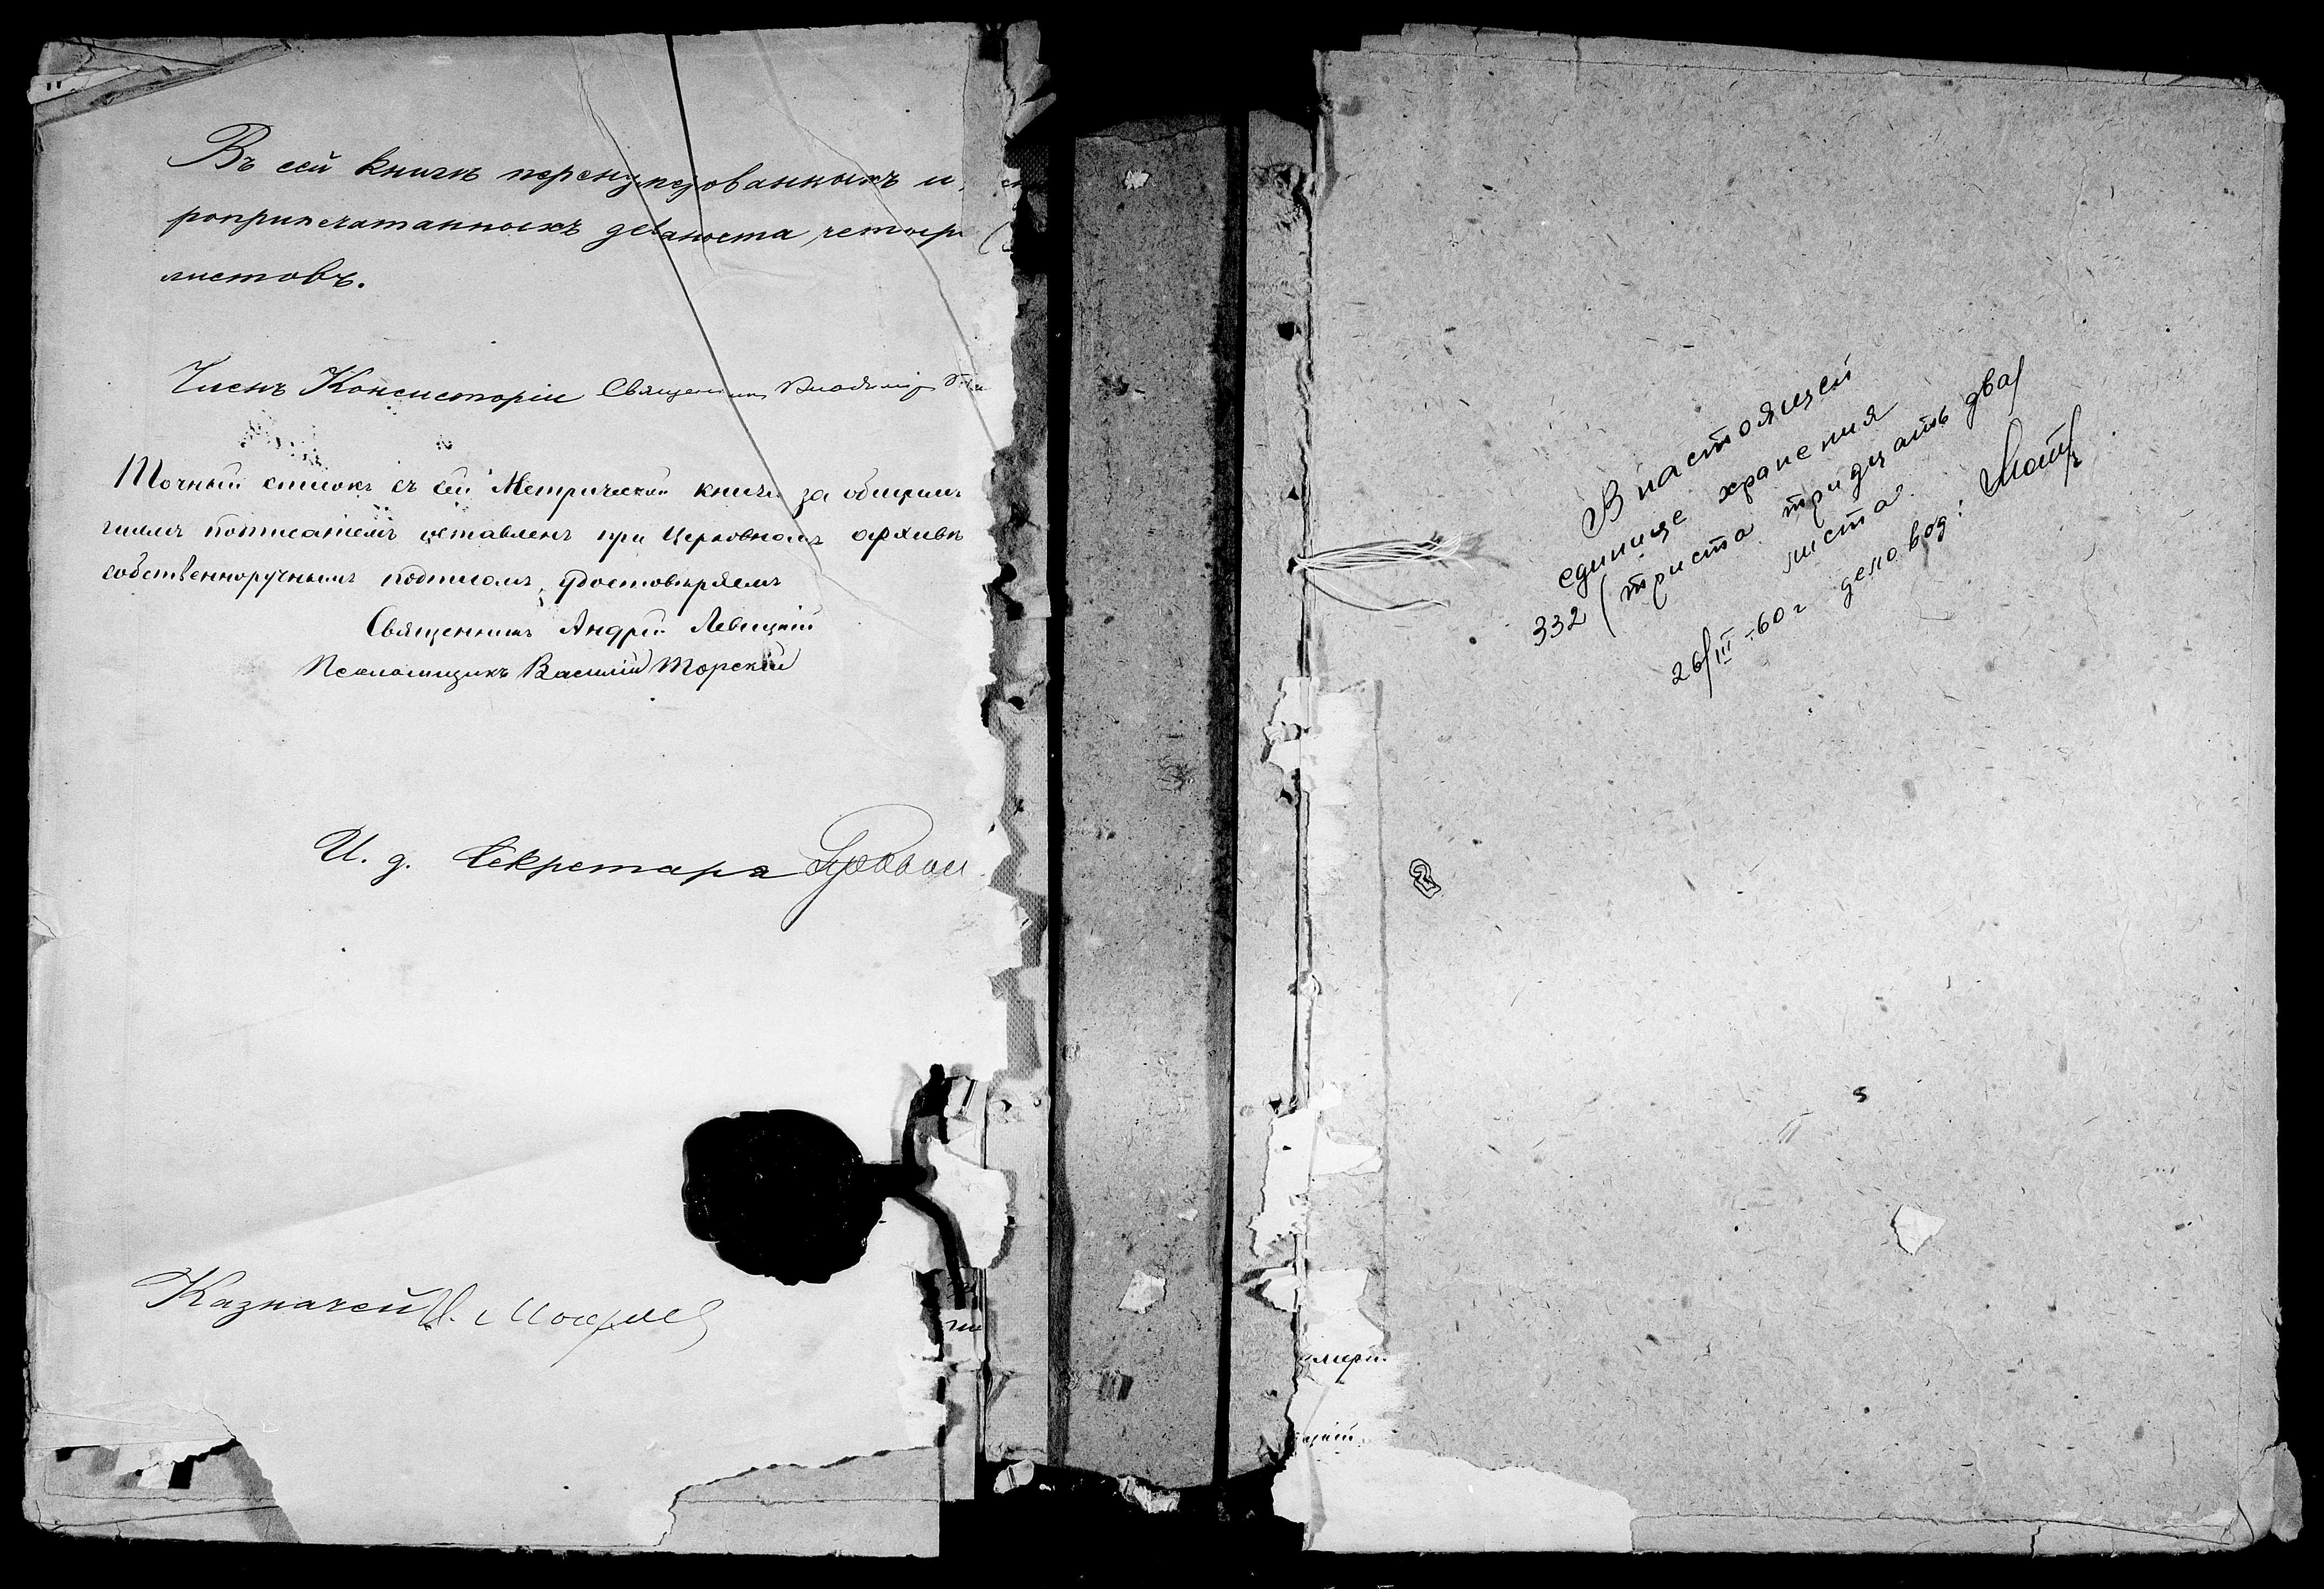 Въ сей книгѣ перенумерованныхъ и
роприпечатанныхъ девяноста четыре (
листовъ.
Членъ Консисторіи Священникъ Владимір
Точный списокъ съ сей Метрической книги за общимъ
нашимъ подписаніемъ оставленъ при Церковномъ архивѣ
собственноручнымъ подписомъ удостовѣряемъ
Священникъ Андрей Левицкій
Псаломщикъ Василій Торскій
И. д. Секретаря
Казначей
В настоящей
единице хранения
332 (триста тридцать два)
листа.
26/III-60 г деловод: